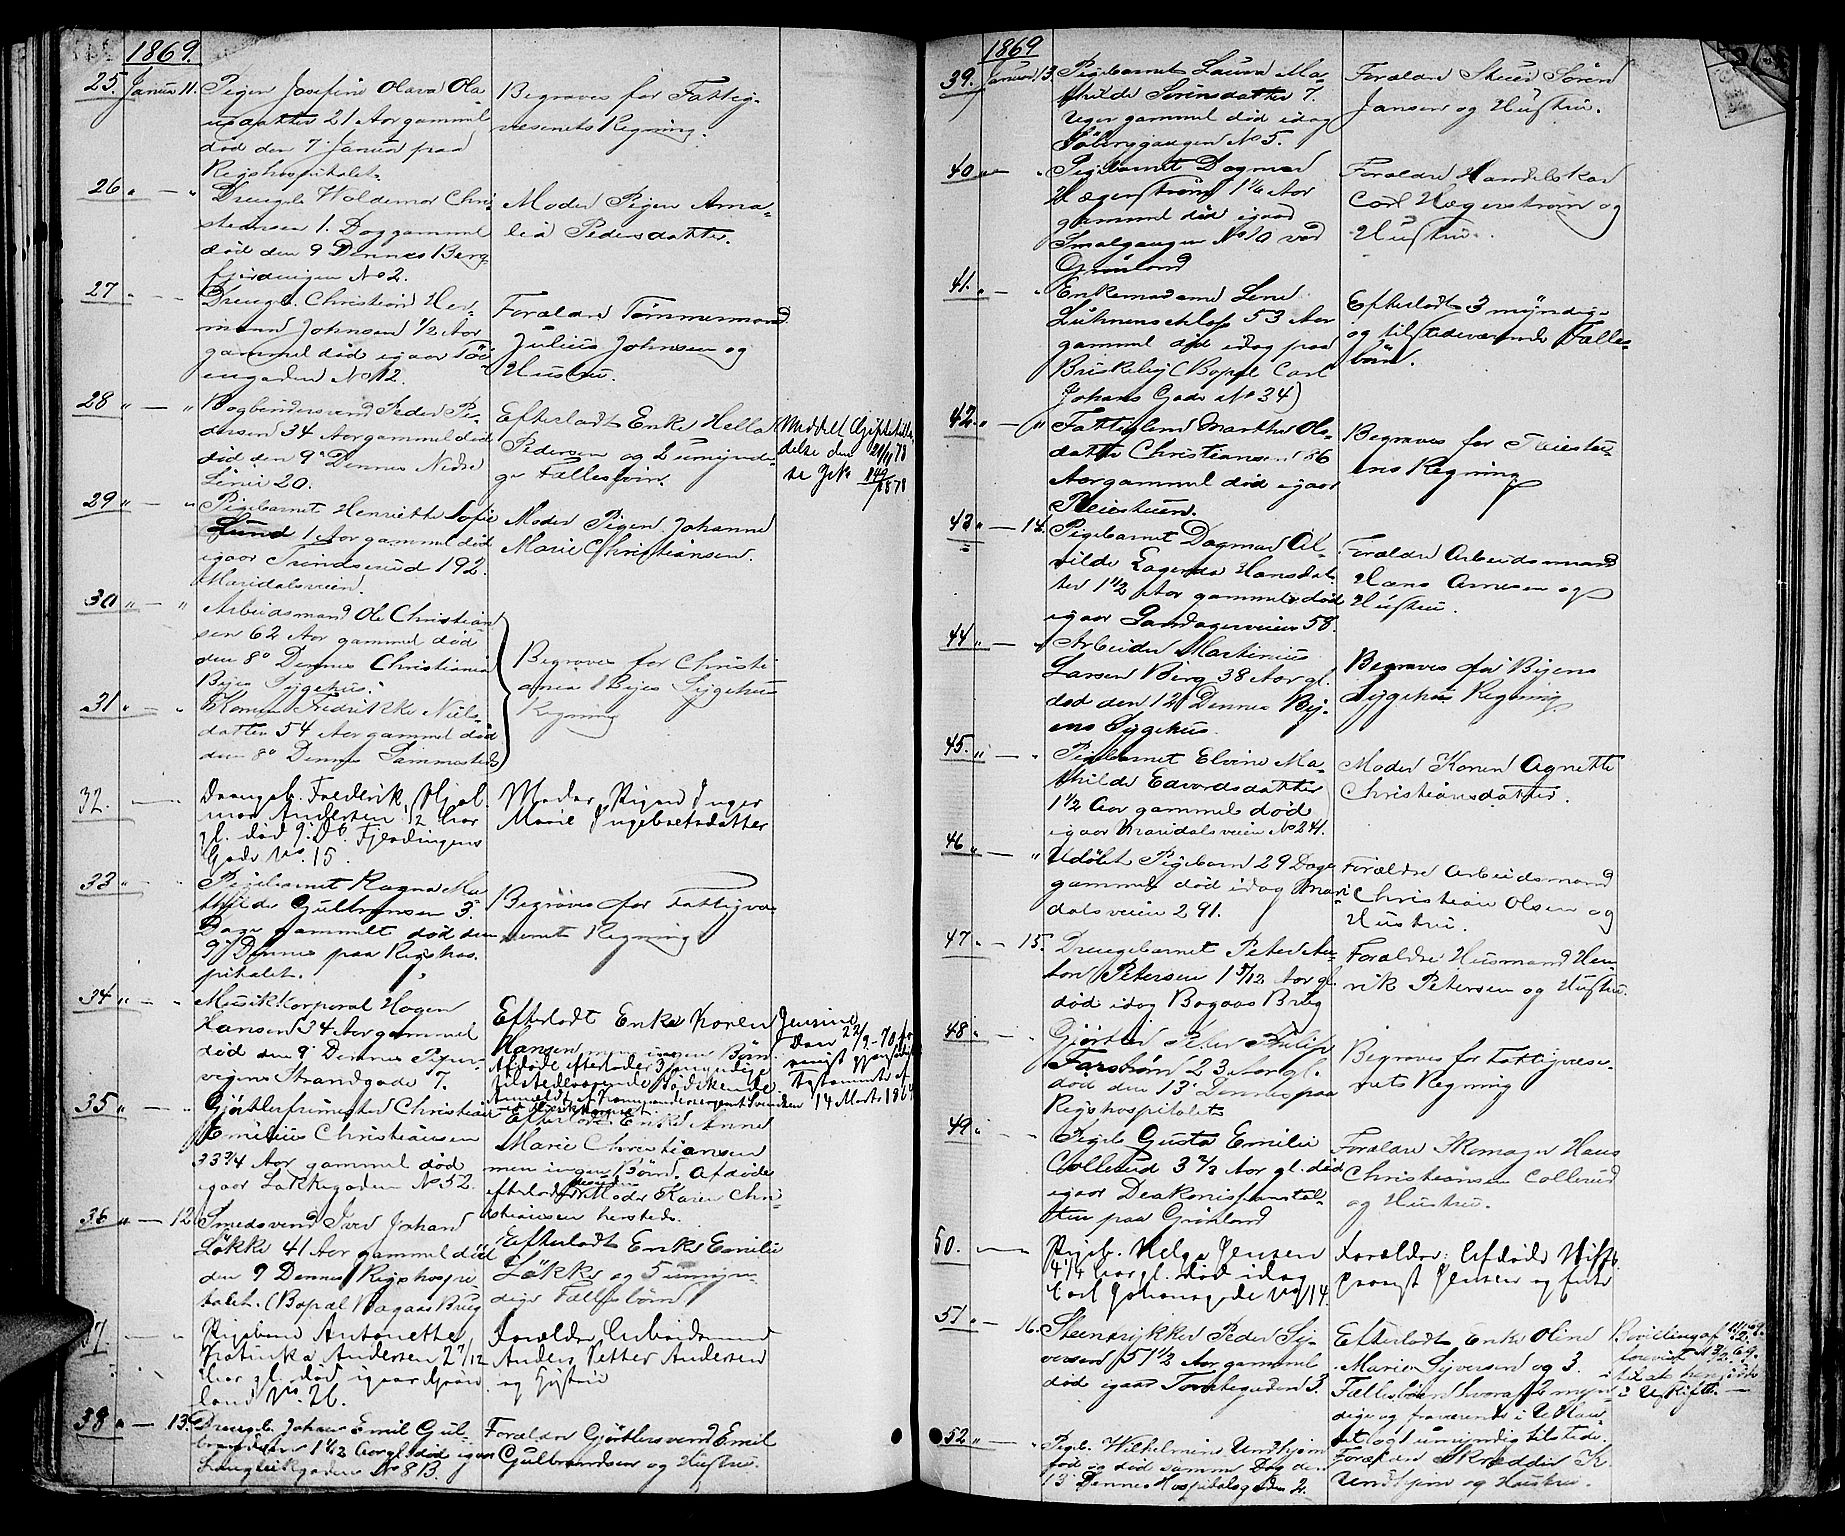 1869.
25. Januar 11. Pigen Josefine Olava Ola-
usdatter 21 Aar gammel
død den 7 Januar paa
Rigshospitalet.
Begraves for Fattig-
væsenets Regning.
26. — " Drengeb. Waldemar Chri-
stensen 1. Dag gammel
død den 9 Dennes Berg-
fjerdingen No 2.
Moder Pigen Ama-
lia Pedersdatter.
27 " — " Drengeb. Christian Her-
mann Johnsen 1/2 Aar
gammel død igaar Tøi-
engaden No 12.
Forældre Tømmermand
Julius Johnsen og
Hustru.
28 " — " Bogbindersvend Peder Pe-
dersen 34 Aar gammel død
død den 9 Dennes Nedre
Linie 20.
Efterladt Enke Hella
Pedersen og 2 umyndi-
ge Fællesbørn.
Meddelt Skiftetilla-
delse den 20/11 78
se J. No 149/1878
29 " — " Pigebarnet Henriette Sofie
Lund 1 Aar gammel død
igaar Trindserud 192
Maridalsveien.
Moder Pigen Johanne
Marie Christiansen.
30 " — " Arbeidsmand Ole Christian-
sen 62 Aar gammel død
den 8 Dennes Christiania
Byes Sygehus.
Begraves for Christi-
ania Byes Sygehus
Regning
31 " — " Konen Fredrikke Niels-
datter 54 Aar gammel død
den 8 Dennes Sammesteds
32. — Drengeb. Frederik Hjal-
mar Andersen 1/2 Aar
gl. død 9 Ds. Fjerdingens
Gade No. 15.
Moder Pigen Inger
Marie Ingebretsdatter
33 " — " Pigebarnet Ragna Ma-
thilde Gulbransen 3
Dage gammelt død den
9 Dennes paa Rigshos-
pitalet.
Begraves for Fattigvæ-
senets Regning
34 " — " Musikkorporal Hagen
Hansen 34 Aar gammel
død den 9 Dennes Piper-
vigens Strandgade 7.
Efterladt Enke Karen Jensine
Hansen men ingen Børn.
Afdøde efterlader 3 myndige
tilstedeværende Sødskende.
Den 22/2-70
Testamente af
14 Marts 1864
35 " — " Gjørtlerfrimester Christian
Emilius Christiansen
33 3/4 Aar gammel død
igaar Lakkegaden No 52.
Efterladt Enke Anne
Marie Christiansen
men ingen Børn. Afdøde
efterlader Moder Karen Chri-
stiansen hersteds.
36 " — 12 Smedsvend Iver Johan
Løkke 41 Aar gammel død
den 9 Dennes Rigshospi-
talet. (Bopæl Bagaas Brug
Efterladt Enke Emilie
Løkke og 5 umyn-
dige Fællesbørn.
37 — " Pigebarn Antonette
Katinka Andersen 2 7/12
Aar gl. død igaar Grøn-
land No. 26.
Forældre Arbeidsmand
Anders Petter Andersen
og Hustru
38 " — 13. Drengeb. Johan Emil Gul-
brandsen 1 1/2 Aar gl. død igaar
Langleikgaden No 813.
Forældre Gjørtlersvend Emil
Gulbrandsen og Hustru.
1869
39. Januar 13. Pigebarnet Laura Ma-
thilde Sørensdatter 7.
Uger gammel død idag
Søberggangen No 5.
Forældre Skuer Søren
Jansen og Hustru.
40 — " Pigebarnet Dagmar
Hægerstrøm 1 1/4 Aar
gammel død igaar
Smalgangen No 10 ved
Grønland
Forældre Handelskar
Carl Hægerstrøm og
Hustru.
41. " — " Enkemadame Lene
Lühnenschloss 53 Aar
gammel død idag paa
Briskeby (Bopæl Carl
Johans Gade No 34)
Efterladt 3 myndige
og tilstedeværende Fælles-
børn.
42. " — " Fattiglem Marthe Ols-
datter Christiansen 86
Aar gammel død igaar
Pleiestuen.
Begraves for Pleiestu-
ens Regning
43 " — 14. Pigebarnet Dagmar Al-
vilde Hansdat-
ter 1 1/2 Aar gammel død
igaar Sandagerveien 58.
Forældre Arbeidsmand
Hans Arnesen og
Hustru.
44 " — " Arbeider Martinius
Larsen Berg 38 Aar gl.
død den 12 Dennes By-
ens Sygehus.
Begraves for Byens
Sygehus Regning
45. " — " Pigebarnet Elvine Ma-
thilde Edvardsdatter
1 1/2 Aar gammel død
igaar Maridalsveien No 241.
Moder Konen Agnethe
Christiansdatter.
46 " — " Udøbt Pigebarn 29 Dage
gammel død idag Mari-
dalsveien 291.
Forældre Arbeidsmand
Christian Olsen og
Hustru.
47 " — 15. Drengebarnet Peter An-
ton Petersen 1 5/12 Aar gl.
død idag Bagaas Brug
Forældre Husmand Hen-
rik Petersen og Hustru.
48 " — " Gjørtler Peter Philip
Farstrøm 23 Aar gl.
død den 13 Dennes paa
Rigshospitalet
Begraves for Fattigvæse-
nets Regning
49 " — " Pigeb. Gusta Emilie
Collerud 3 1/2 Aar gl. død
igaar Deakonisseanstal-
ten paa Grønland
Forældre Skomager Hans
Christiansen Collerud
og Hustru.
50. — Pigeb. Helga Jensen
4 1/4 Aar gl. død idag
Carl Johansgade No 14.
Forældre: Afdøde Stifts-
provst Jensen og Frue
51 " — 16. Steentrykker Peder Sy-
versen 51 1/2 Aar gammel
død igaar Torvetgaden 3.
Efterladt Enke Oline
Marie Syversen og 3.
Fællesbørn hvoraf 2 myn-
dige og fraværende i Udlan-
det og 1 umyndig tilstede.
Bevilling af
forevist 13/2 69.
til at hensidde
i Uskifte. —
52 " — " Pigeb. Wilhelmine Undhjem
fød og død samme Dag den
13 Dennes Hospitalsgaden 2.
Forældre Skrædder K.
Undhjem og Hustru.